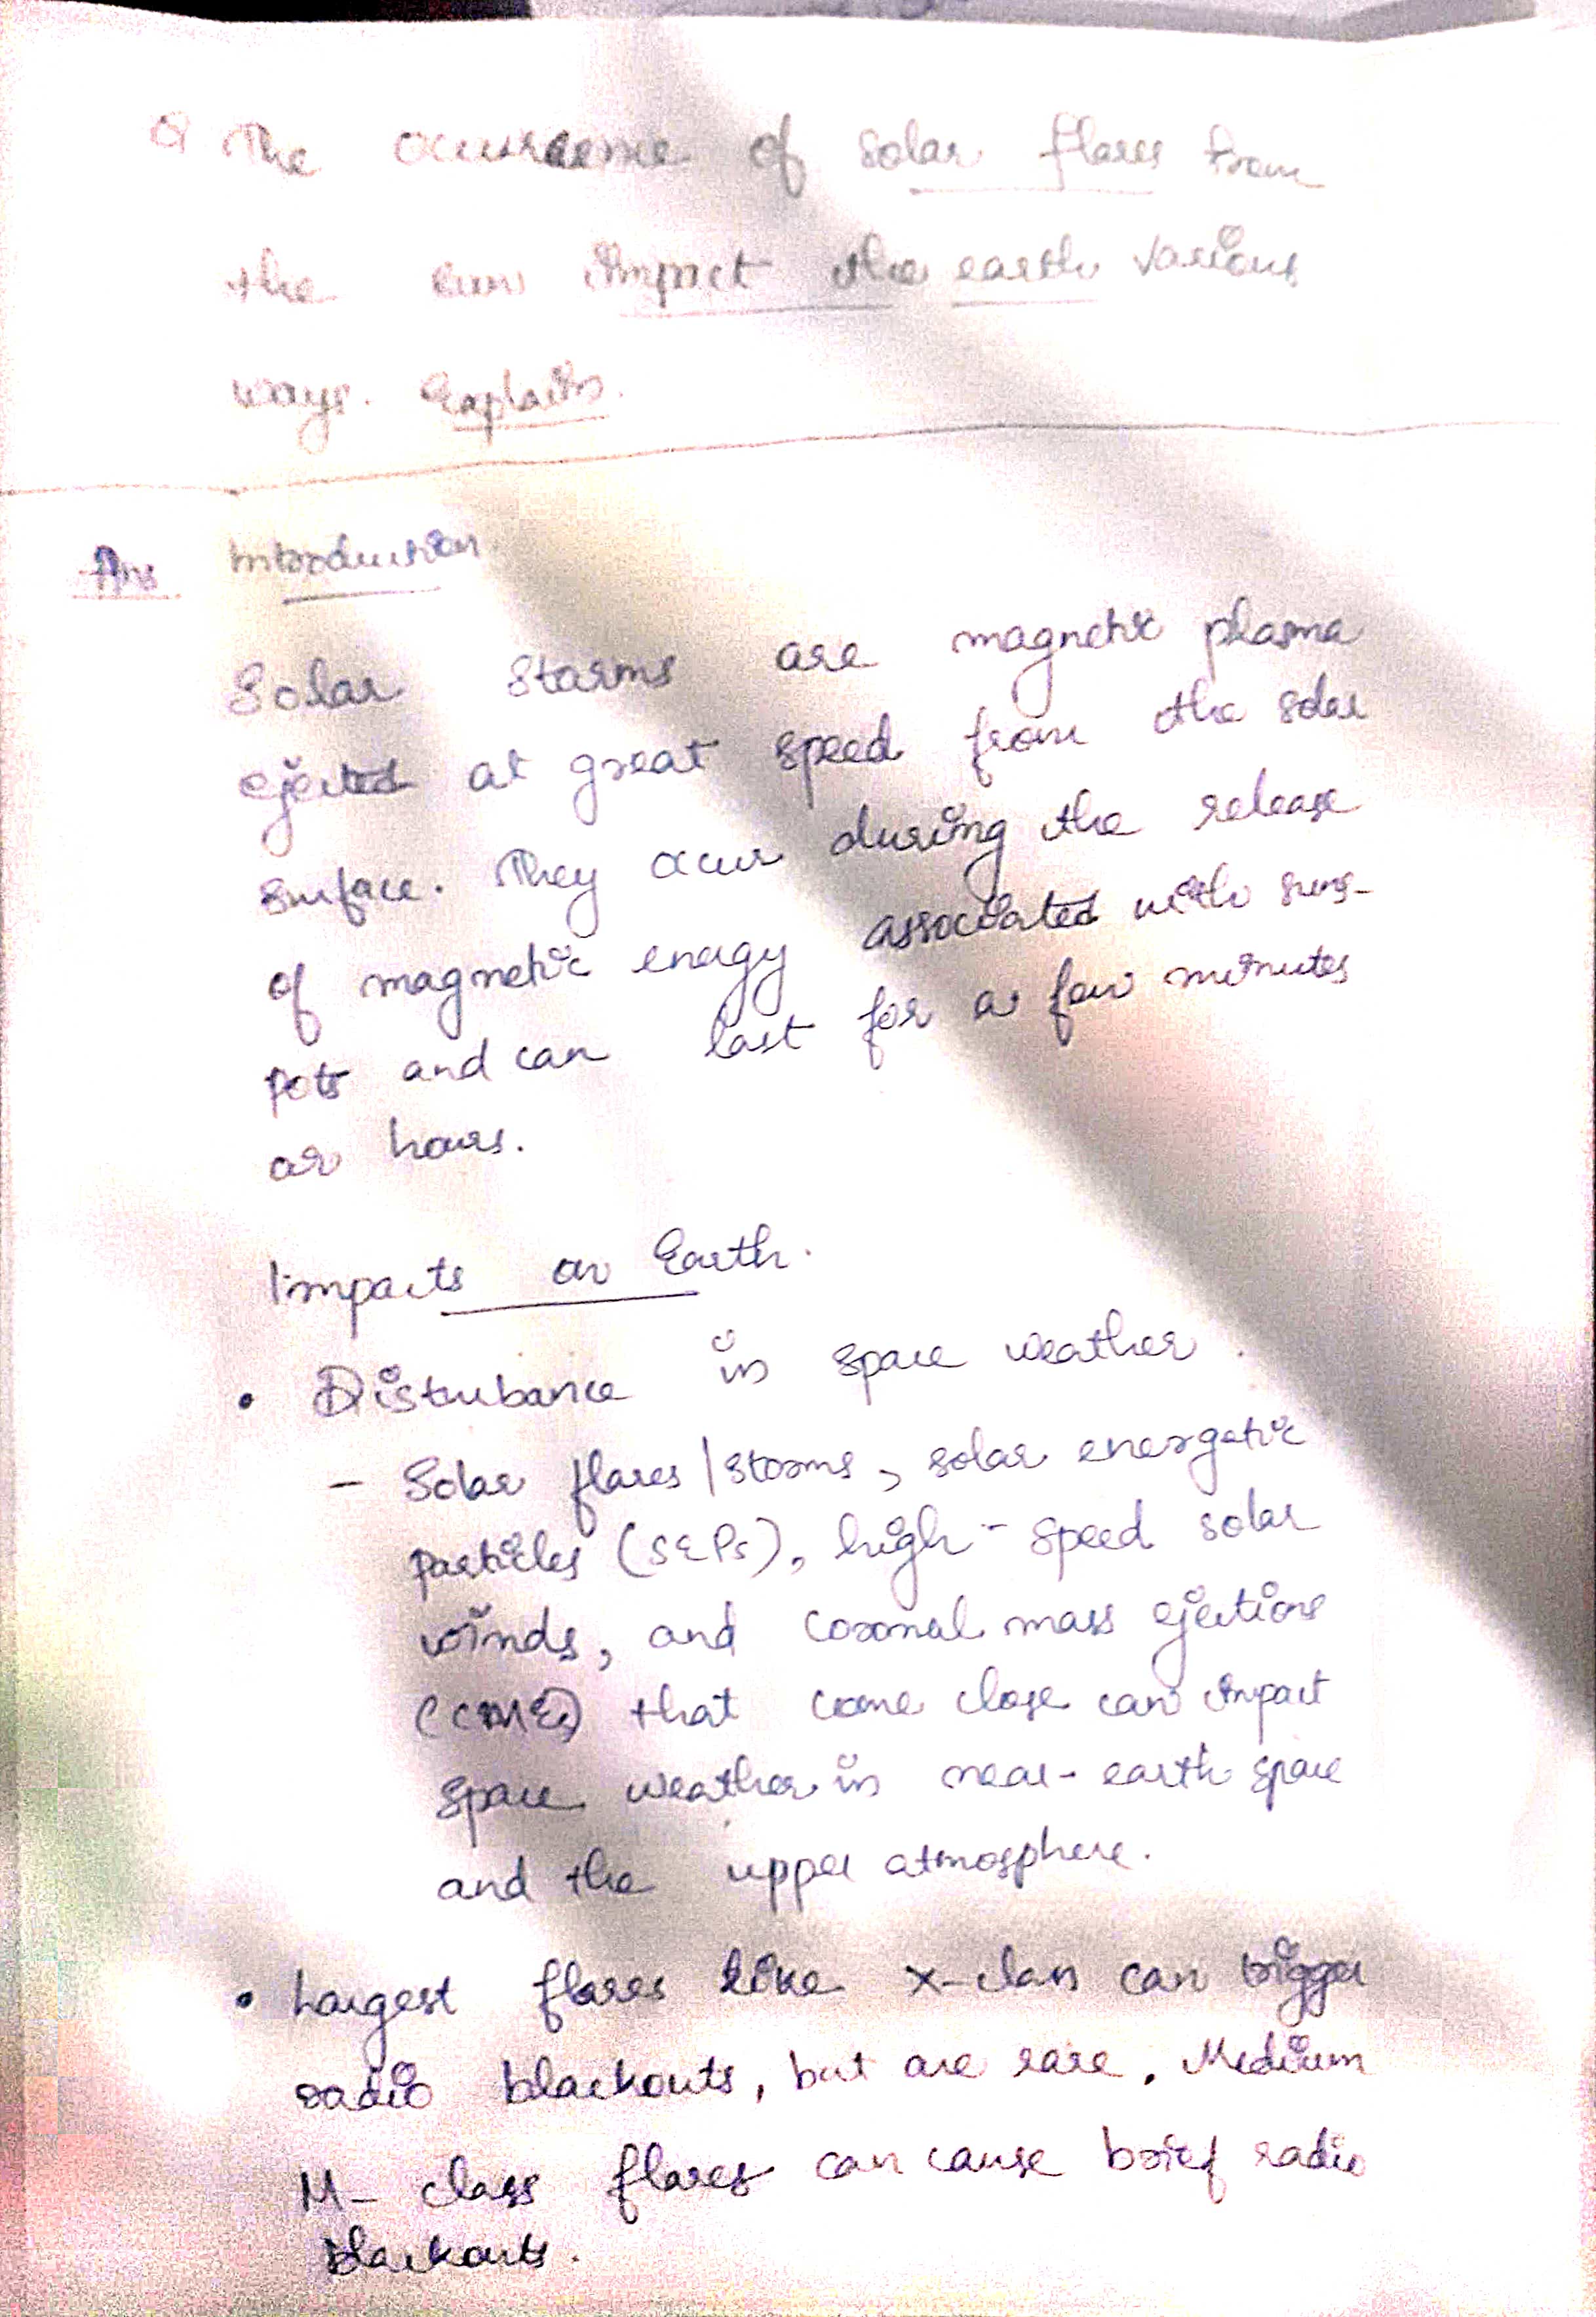 Q The occurrence of solar flares from
the sun impact the earth various
ways. Explain.
Ans Introduction.
Solar storms are magnetic plasma
ejected at great speed from the solar
surface. They occur during the release
of magnetic energy associated with suns-
pots and can last for a few minutes
or hours.
Impacts on Earth.
• Disturbance in space weather.
- Solar flares/storms, solar energetic
particles (SEPs), high-speed solar
winds, and coronal mass ejections
(CMEs) that come close can impact
space weather in near-earth space
and the upper atmosphere.
• Largest flares like X-class can trigger
radio blackouts, but are rare. Medium
M- class flares can cause brief radio
blackouts.